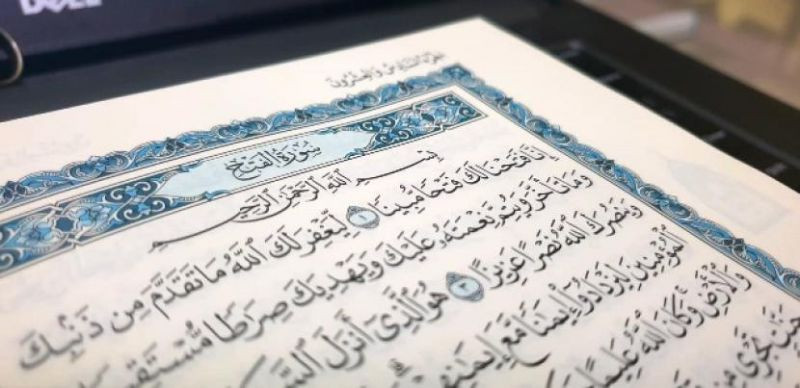 DELL
الجزء السادس والعشرون
سُورَةُ الفَتْحِ
بِسْمِ ٱللَّهِ ٱلرَّحْمَٰنِ ٱلرَّحِيمِ
إِنَّا فَتَحْنَا لَكَ فَتْحًا مُّبِينًا ١ لِّيَغْفِرَ لَكَ ٱللَّهُ مَا تَقَدَّمَ مِن ذَنۢبِكَ
وَمَا تَأَخَّرَ وَيُتِمَّ نِعْمَتَهُۥ عَلَيْكَ وَيَهْدِيَكَ صِرَٰطًا مُّسْتَقِي
وَيَنصُرَكَ ٱللَّهُ نَصْرًا عَزِيزًا ٣ هُوَ ٱلَّذِىٓ أَنزَلَ ٱلسَّكِ
ٱلْمُؤْمِنِينَ لِيَزْدَادُوٓا۟ إِيمَٰنًا مَّعَ إِيمَٰنِهِ
وَٱلْأَرْضِ وَكَانَ ٱللَّهُ عَلِيمًا
جَنَّٰتٍ تَجْرِى